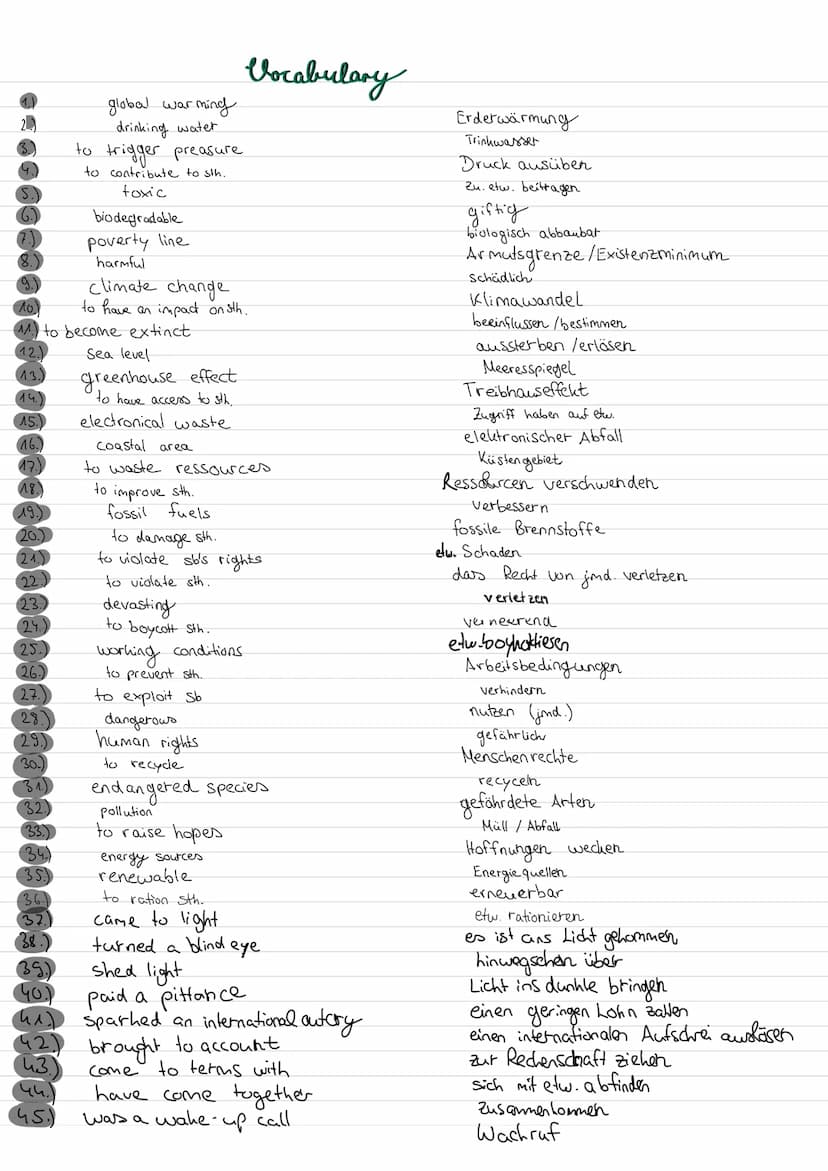 Vocabulary
1.) global warming Erderwärmung
2.) drinking water Trinkwasser
3.) to trigger preasure Druck ausüben
4.) to contribute to sth. zu. etw. beitragen
5.) toxic giftig
6.) biodegradable biologisch abbaubar
7.) poverty line Armutsgrenze/Existenzminimum
8.) harmful schädlich
9.) climate change Klimawandel
10.) to have an impact on sth. beeinflussen/bestimmen
11.) to become extinct aussterben/erlösen
12.) sea level Meeresspiegel
13.) greenhouse effect Treibhauseffekt
14.) to have access to sth. Zugriff haben auf etw.
15.) electronical waste elektronischer Abfall
16.) coastal area Küstengebiet
17.) to waste ressources Ressourcen verschwenden
18.) to improve sth. verbessern
19.) fossil fuels fossile Brennstoffe
20.) to damage sth. etw. Schaden
21.) to violate sb's rights das Recht von jmd. verletzen
22.) to violate sth. verletzen
23.) devasting verneerend
24.) to boycott sth. etw. boykottiesen
25.) working conditions Arbeitsbedingungen
26.) to prevent sth. verhindern
27.) to exploit sb nutzen (jmd.)
28.) dangerous gefährlich
29.) human rights Menschenrechte
30.) to recycle recyceln
31.) endangered species gefährdete Arten
32.) pollution Müll / Abfall
33.) to raise hopes Hoffnungen wecken
34.) energy sources Energiequellen
35.) renewable erneuerbar
36.) to ration sth. etw. rationieren
37.) came to light es ist ans Licht gekommen
38.) turned a blind eye hinwegsehen über
39.) shed light Licht ins dunkle bringen
40.) paid a pittance einen geringen Lohn zahlen
41.) sparked an international outcry einen internationalen Aufschrei auslösen
42.) brought to account zur Rechenschaft ziehen
43.) come to terms with sich mit etw. abfinden
44.) have come together zusammenkommen
45.) was a wake-up call Wachruf